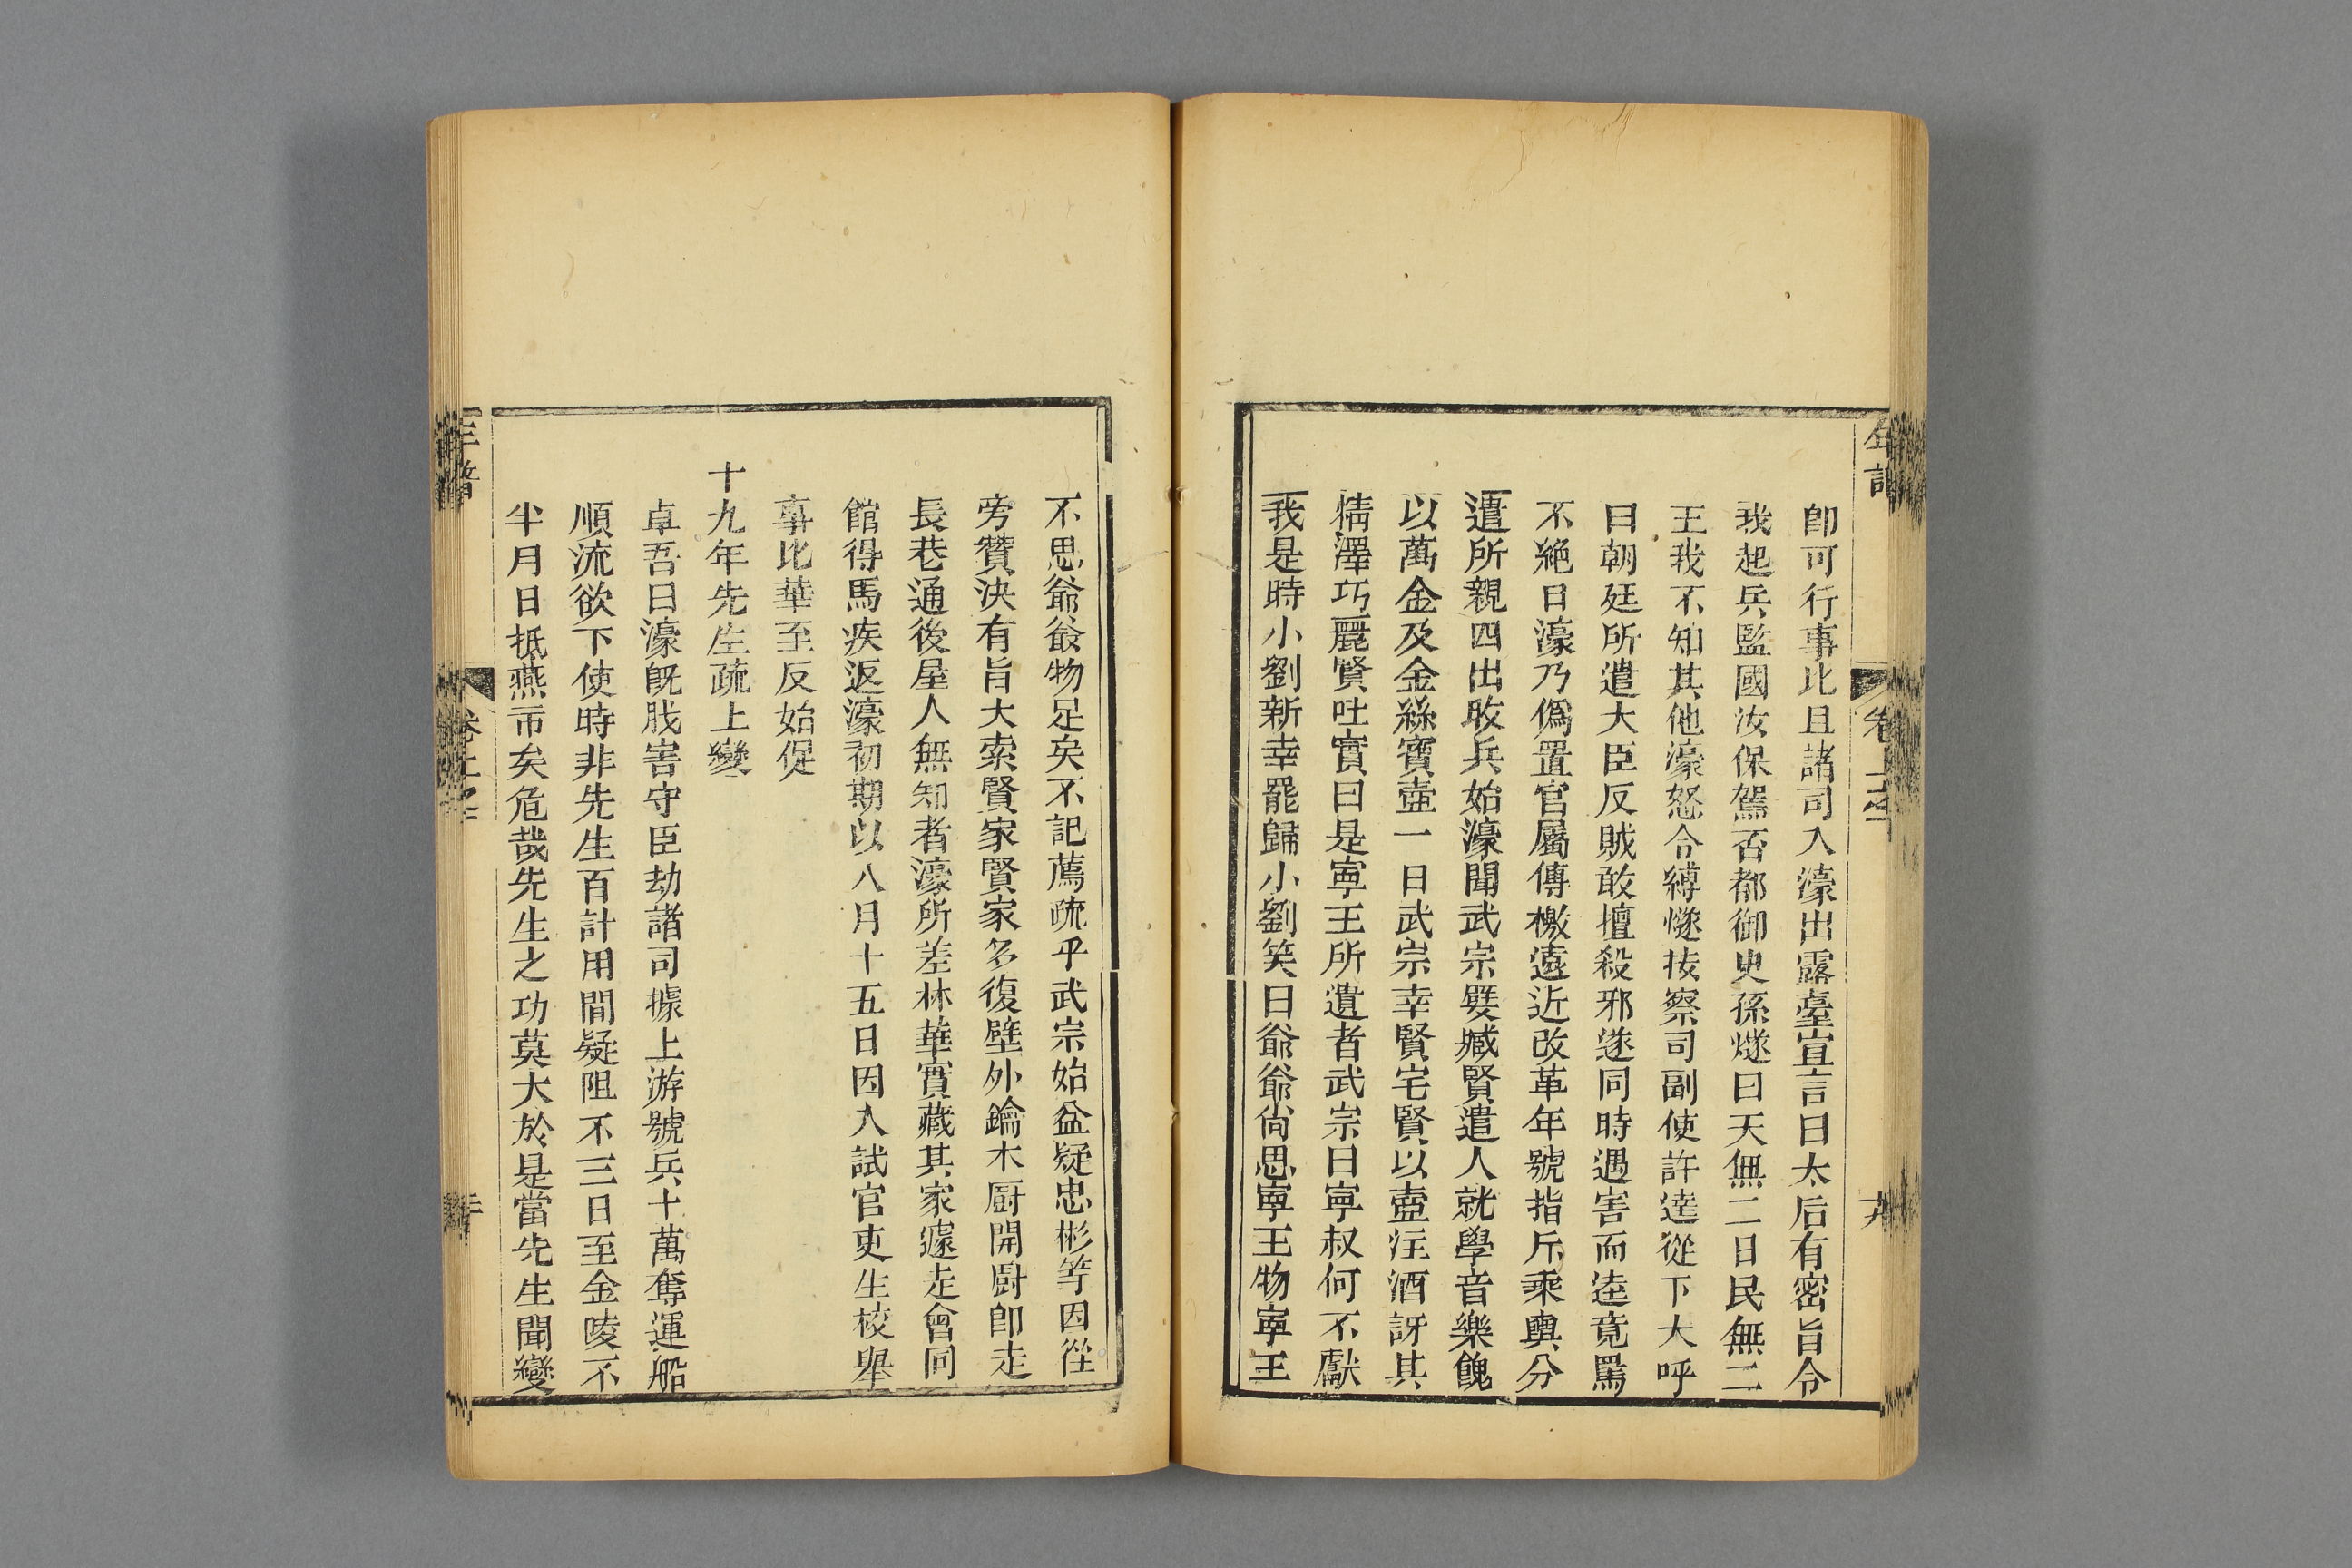 年譜
卷上之二
十九
卽可行事比旦諸司入濠出露臺宣言曰太后有密旨令
我起兵監國汝保駕否都御史孫燧曰天無二日民無二
王我不知其他濠怒令縛燧按察司副使許逵從下大呼
曰朝廷所遣大臣反賊敢擅殺邪遂同時遇害而逵竟罵
不絶口濠乃僞置官屬傳檄遠近改革年號指斥乘輿分
遣所親四出收兵始濠聞武宗嬖臧賢遣人就學音樂餽
以萬金及金絲寶壺一日武宗幸賢宅賢以壺注酒訝其
精澤巧麗賢吐實曰是寧王所遺者武宗曰寧叔何不獻
我是時小劉新幸罷歸小劉笑曰爺爺尙思寧王物寧王
不思爺爺物足矣不記薦疏乎武宗始益疑忠彬等因從
旁贊決有旨大索賢家賢家多復壁外鑰木厨開厨卽走
長巷通後屋人無知者濠所差林華實藏其家遽走會同
館得馬疾返濠初期以八月十五日因入試官吏生校舉
事比華至反始促
十九年先生疏上變
卓吾曰濠旣戕害守臣劫諸司據上游號兵十萬奪運船
順流欲下使時非先生百計用間疑阻不三日至金陵不
半月日抵燕市矣危哉先生之功莫大於是當先生聞變
年譜
卷上之二
二十